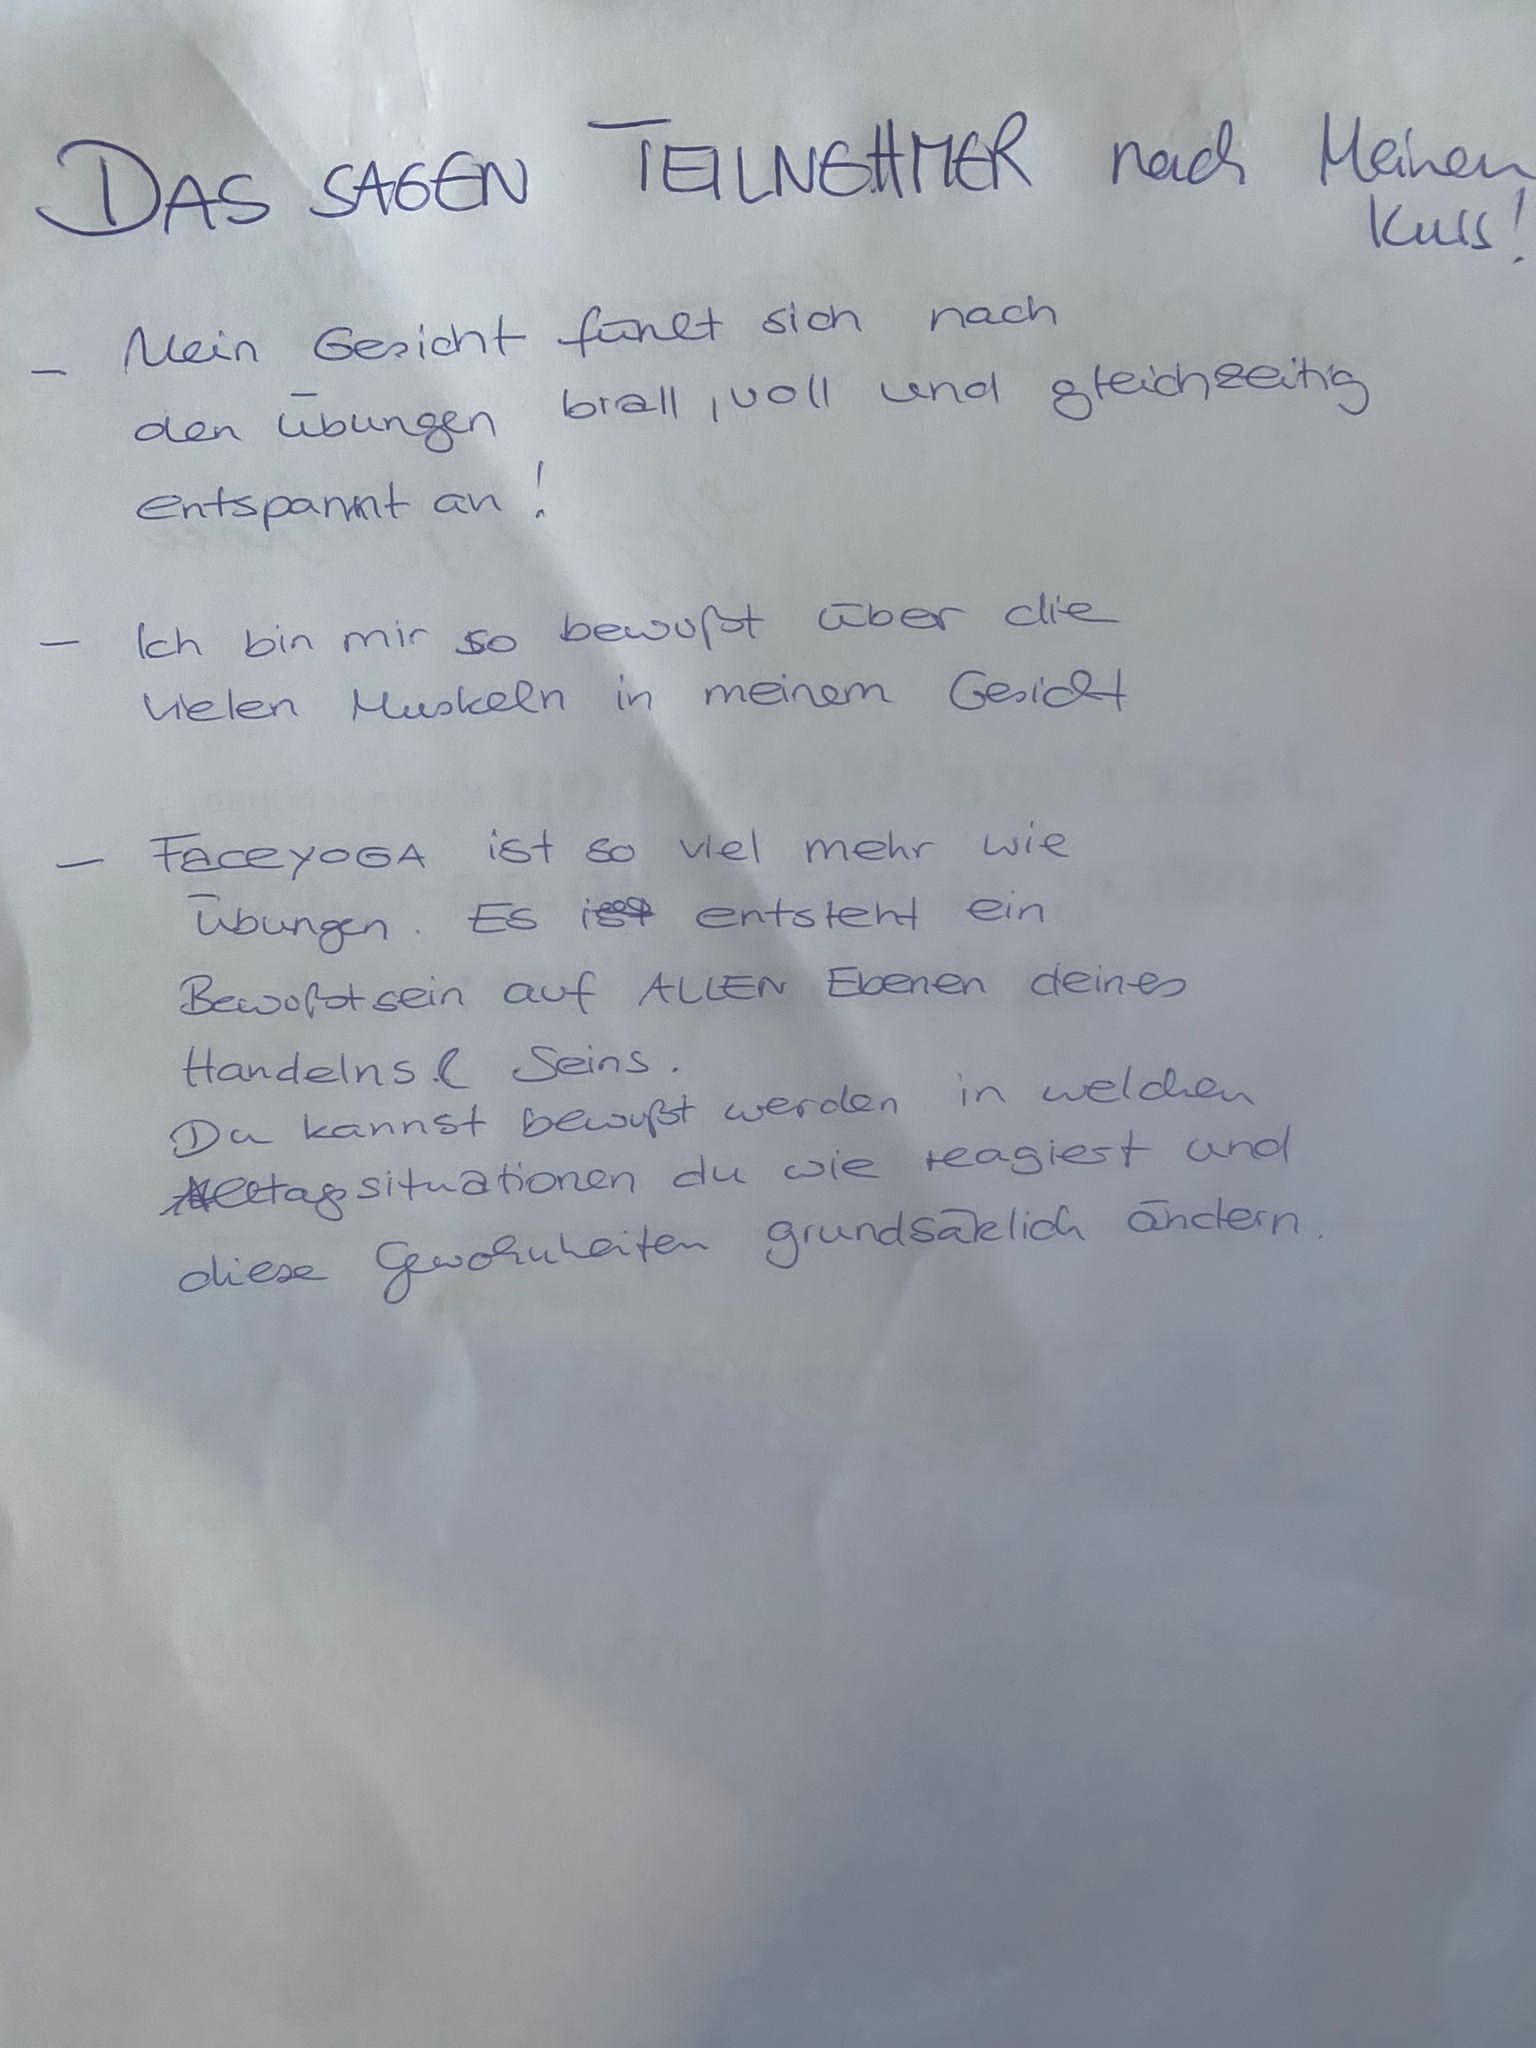 DAS SAGEN TEILNEHMER nach Meinen
Kurs!
- Mein Gesicht fühlt sich nach
den Übungen brall, voll und gleichzeitig
entspannt an!
- Ich bin mir so bewußt über die
vielen Muskeln in meinem Gesicht
- FACEYOGA ist so viel mehr wie
Übungen. Es ist entsteht ein
Bewußtsein auf ALLEN Ebenen deines
Handelns & Seins.
Du kannst bewußt werden in welchen
Alltagssituationen du wie reagierst und
diese Gewohnheiten grundsäzlich ändern.